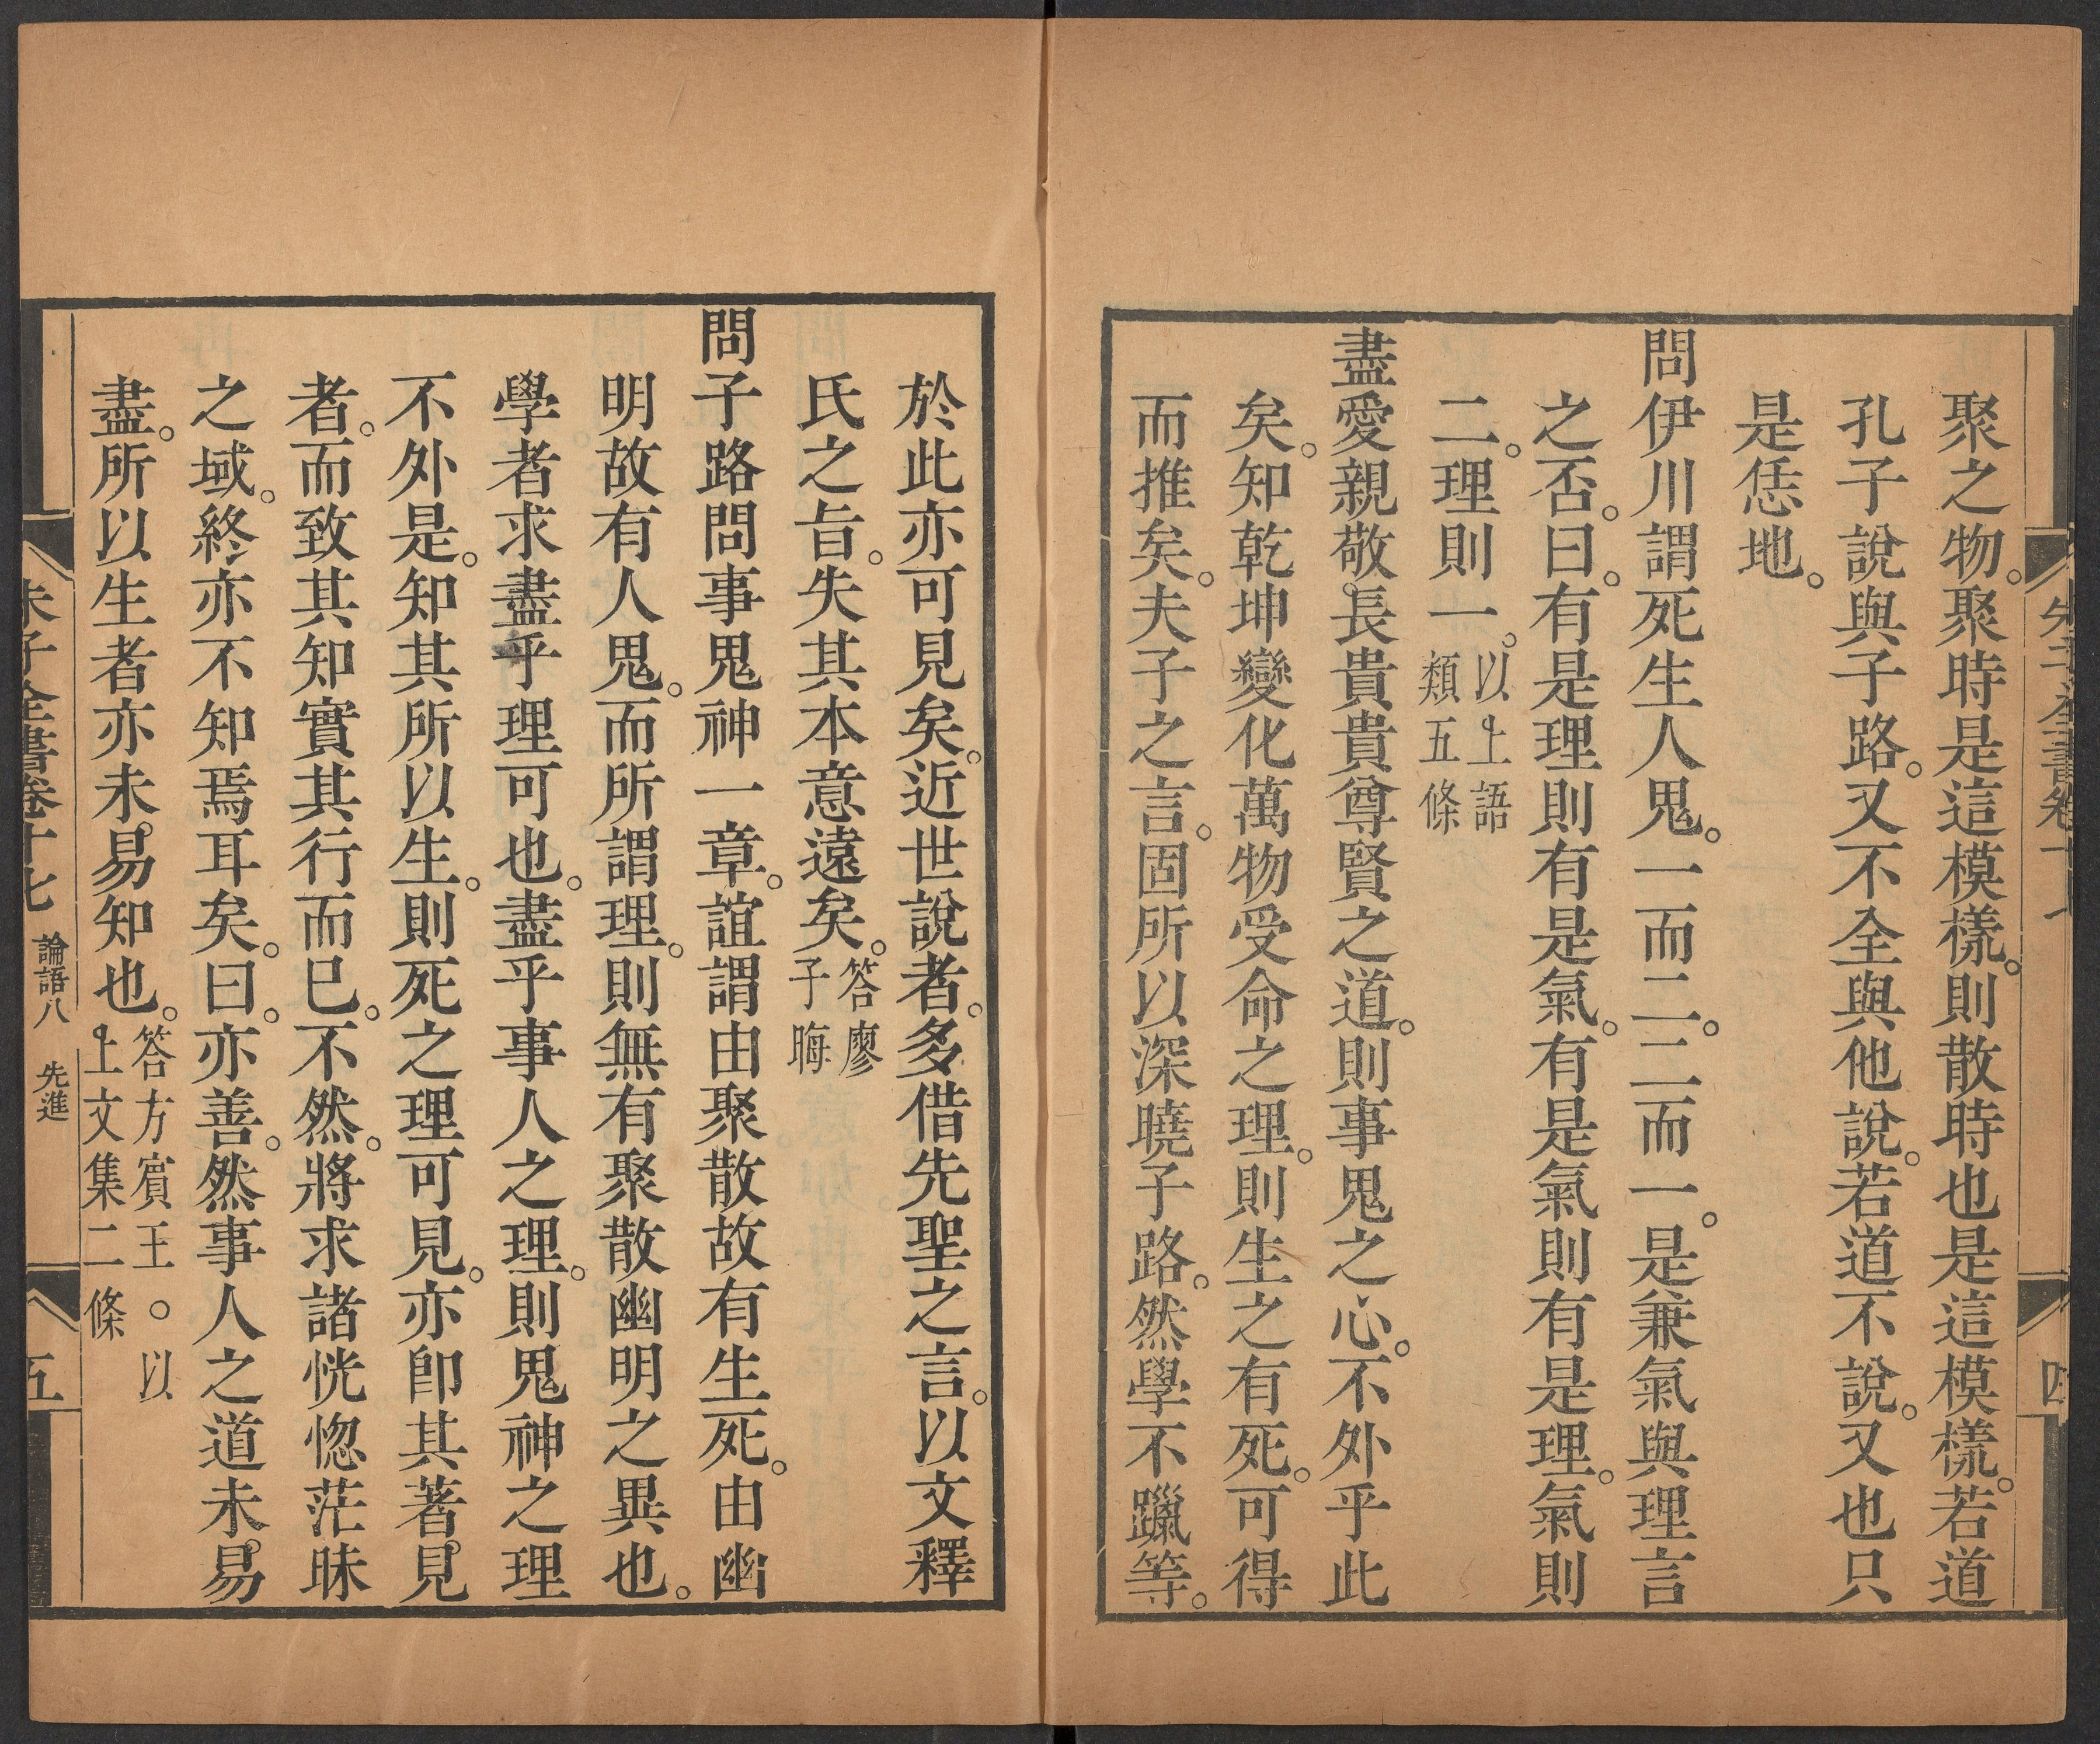 聚之物。聚時是這模樣。則散時也是這模樣。若道
孔子說與子路。又不全與他說。若道不說。又也只
是恁地。
問伊川謂死生人鬼。一而二。二而一。是兼氣與理言
之否。曰。有是理則有是氣。有是氣則有是理。氣則
二。理則一。以上語
類五條
盡愛親敬。長貴貴尊賢之道。則事鬼之心。不外乎此
矣。知乾坤變化萬物受命之理。則生之有死。可得
而推矣。夫子之言。固所以深曉子路。然學不躐等。
於此亦可見矣。近世說者。多借先聖之言。以文釋
氏之旨。失其本意遠矣。答廖
子晦
問子路問事鬼神一章。誼謂由聚散故有生死。由幽
明故有人鬼。而所謂理。則無有聚散幽明之異也。
學者求盡乎理可也。盡乎事人之理。則鬼神之理
不外是。知其所以生。則死之理可見。亦卽其著。見
者。而致其知實其行而已。不然。將求諸恍惚茫昧
之域。終亦不知焉耳矣。曰。亦善。然事人之道未。易
盡。所以生者亦未。易知也。答方賓王。以
上文集二條
朱子全書卷十七 論語八 先進 五